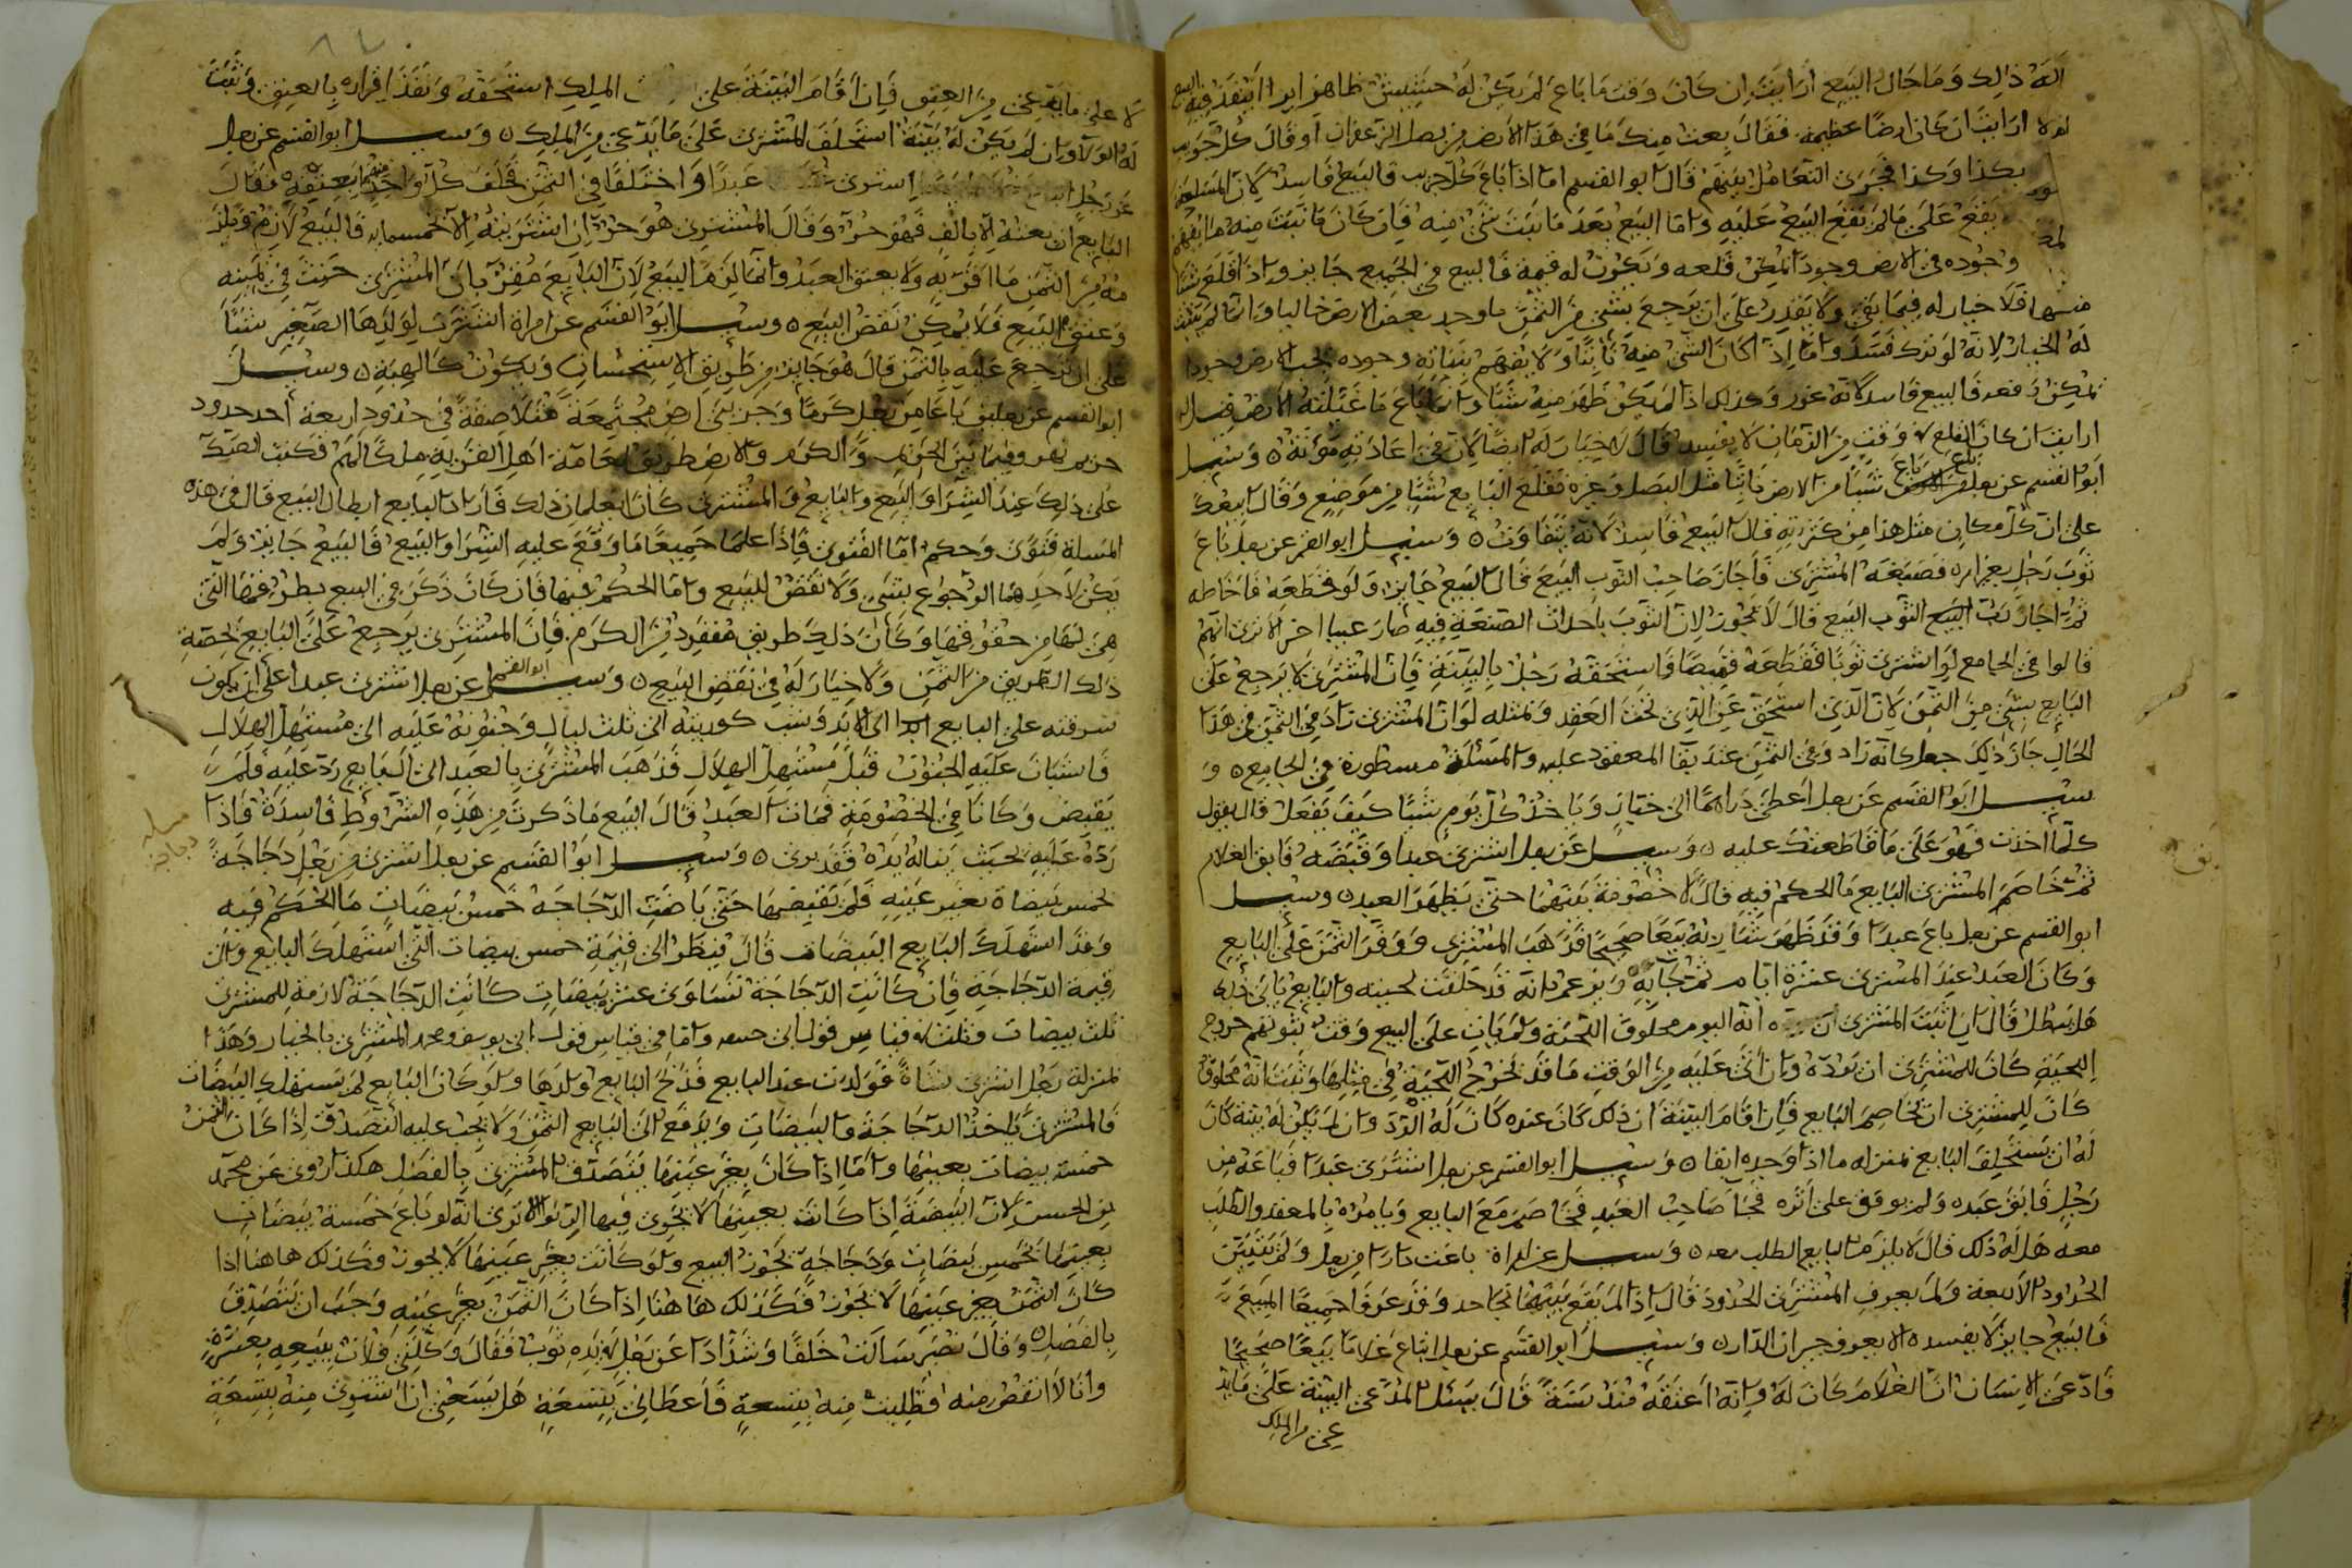 اله ذلك وما حال البيع ارايت ان كان وقت ما باع لم يكن له حشيش ظاهر
ارايت ان كان ارضا عظيمة فقال بعت منك ما في هذا الارض من بصل الزعفران او قال كل جريب
بكذا وكذا فجرى التعامل بينهم قال ابو القسم اما اذا باع كل جريب فالبيع فاسد لان المسلم
يقع على ما لم يقع البيع عليه واما البيع بعد ما نبت شي منه فان كان ما نبت منه
وجوده في الارض وجودا يمكن قلعه ويكون له قيمة فالبيع في الجميع جايز واذا قلع شيا
منها فلا خيار له فيما بقي ولا يقدر على ان يرجع بشي من الثمن ما وجد بعض الارض خاليا وانما لم يثبت
له الخيار لانه لو ترك فسد واما اذا كان الشي منه نابتا ولا يفهم بنباته وجوده تحت الارض وجودا
يمكن دفعه فالبيع فاسد لانه غرر وكذلك اذا لم يكن ظهر منه شيا وانما باع ما غيبته الارض قيل له
ارايت ان كان القلع في وقت من الزمان لا يفسد قال لا خيار له ايضا لان في اعادته مؤنة وسيل
ابو القسم عن رجل باع شيا من الارض نابتا مثل البصل وغيره فقلع البايع شيا من موضع وقال ابيعك
على ان كل مكان مثل هذا من كثرته قال البيع فاسد لانه يتفاوت وسيل ابو القسم عن رجل باع
ثوب رجل بغير امره فصبغه المشتري فاجاز صاحب الثوب البيع قال البيع جايز ولو قطعه فاخاطه
ثم اجاز رب الثوب البيع قال لا يجوز لان الثوب باحداث الصنعة فيه صار عيبا اخر الا ترى انهم
قالوا في الجامع لو اشترى ثوبا فقطعه قميصا فاستحقه رجل بالبينة فان المشتري لا يرجع على
البايع بشي من الثمن لان الذي استحق غير الذي تحت العقد وبمثله لو ان المشتري زاد في الثمن في هذا
الحال جاز ذلك جعل كانه زاد في الثمن عند بقا المعقود عليه والمسئلة مسطورة في الجامع و
سيل ابو القسم عن رجل اعطى دراهما الى خباز وياخذ كل يوم شيا كيف يفعل قال يقول
كلما اخذت فهو على ما قاطعتك عليه وسيل عن رجل اشترى عبدا وقبضه فابق الغلام
ثم خاصم المشتري البايع ما الحكم فيه قال لا خصومة بينهما حتى يظهر العبد وسيل
ابو القسم عن رجل باع عبدا وقد ظهر شاربه بيعا صحيحا فذهب المشتري ووفر الثمن على البايع
وكان العبد عند المشتري عشرة ايام ثم جا به ويزعم انه قد حلقت لحيته والبايع يابى ذلك
هل يبطل قال ان اثبت المشتري انه اليوم محلوق اللحية ولم يات على البيع وقت يتوهم خروج
اللحية كان للمشتري ان يرده وان اتى عليه من الوقت ما قد تخرج اللحية في مثلها وثبت انه محلوق
كان للمشتري ان يخاصم البايع فان اقام البينة ان ذلك كان عنده كان له الرد وان لم يكن له بينة كان
له ان يستحلف البايع بمنزله ما اذا وجده ابقا وسيل ابو القسم عن رجل اشترى عبدا فباعه من
رجل فابق عبده ولم يوقف على اثره فجا صاحب العبد فخاصم مع البايع ويامره بالمعقد والطلب
معه هل له ذلك قال لا يلزم البايع الطلب معه وسيل عن امراة باعت دارا من رجل ولم يتبين
الحدود الاربعة ولم يعرف المشتري الحدود قال اذا لم يقع بينهما تجاحد وقد عرفا جميعا المبيع
فالبيع جايز لا يفسده الا يعرف جيران الدار وسيل ابو القسم عن رجل ابتاع غلاما بيعا صحيحا
فادعى الانسان ان الغلام كان له وانه اعتقه منذ سنة قال يسئل المدعي البينة على ما يد
عي من الملك
لا على ما يدعي من العتق فان اقام البينة على الملك استحقه ونفذ اقراره بالعتق وثبت
له الولا وان لم يكن له بينة استحلف المشتري على ما يدعي من الملك وسيل ابو القسم عن رجل
عن رجل اشترى عبدا واختلفا في الثمن فحلف كل واحد منهما بعتقه فقال
البايع ان بعته الا بالف فهو حر وقال المشتري هو حر ان اشتريته الا خمسمايه فالبيع لازم ويلز
مه من الثمن ما اقر به ولا يعتق العبد وانما لزم البيع لان البايع مقر بان المشتري حنث في يمينه
وعتق المبيع فلا يمكن نقض البيع وسيل ابو القسم عن امراة اشترت لولدها الصغير شيا
على ان ترجع عليه بالثمن قال هو جايز من طريق الاستحسان ويكون كالهبة وسيل
ابو القسم عن رجلين باعا من رجل كرما وجريبي ارض مجتمعة متلاصقة في حدود اربعة احد حدود
حريم نهر وفيما بين الحريم والكرم والارض طريق لعامة اهل القرية ملكا لهم فكتب الصك
على ذلك عند الشرا والبيع والبايع والمشتري كانا يعلمان ذلك فاراد البايع ابطال البيع قال في هذه
المسلة فتوى وحكم اما الفتوى فاذا علما جميعا ما وقع عليه الشرا والبيع فالبيع جايز ولم
يكن لاحدهما الرجوع بشي ولا نقض للبيع واما الحكم فيها فان كان ذكر في البيع بطرقها التي
هي لها من حقوقها وكان ذلك طريق مفرد من الكرم فان المشتري يرجع على البايع بحصة
ذلك الطريق من الثمن ولا خيار له في نقض البيع وسيل ابو القسم عن رجل اشترى عبدا على ان يكون
سرقته على البايع ابدا الى الابد وشب كوريته الى ثلث ليال وجنونه عليه الى مستهل الهلال
فاستبان عليه الجنون قبل مستهل الهلال فذهب المشتري بالعبد الى البايع رد عليه فلم
يقبض وكانا في الخصومة فمات العبد قال البيع ما ذكرت من هذه الشروط فاسدة فاذا
رده عليه بحيث يناله يده فقد بري وسيل ابو القسم عن رجل اشترى من رجل دجاجة
بخمس بيضاة بغير عينه فلم تقبضها حتى باضت الدجاجة خمس بيضات ما الحكم فيه
وقد استهلك البايع البيضات قال ينظر الى قيمة خمس بيضات التي استهلك البايع والى
قيمة الدجاجة فان كانت الدجاجة تساوي عشر بيضات كانت الدجاجة لازمة للمشتري
بثلث بيضات وثلث في قياس قول ابي حنيفه واما في قياس قول ابي يوسف ومحمد المشتري بالخيار وهذا
بمنزلة رجل اشترى شاة فولدت عند البايع فذبح البايع ولدها ولو كان البايع لم يستهلك البيضات
فالمشتري ياخذ الدجاجة والبيضات ويدفع الى البايع الثمن ولا يجب عليه التصدق اذا كان الثمن
خمسة بيضات بعينها واما اذا كان بغير عينها يتصدق المشتري بالفضل هكذا روى عن محمد
بن الحسن لان البيضة اذا كانت بعينها لا يجري فيها الربوا الا ترى انه لو باع خمسة بيضات
بعينها بخمس بيضات ودجاجة يجوز البيع ولو كانت بغير عينها لا يجوز وكذلك هاهنا اذا
كان الثمن بغير عينها لا يجوز فكذلك هاهنا اذا كان الثمن بغير عينه وجب ان يتصدق
بالفضل وقال نصير سالت خلفا وشدادا عن رجل في يده ثوب فقال وكلني فلان ببيعه بعشرة
وانا لا انقص منه فطلبت منه بتسعة فاعطاني بتسعة هل يسعني ان اشتري منه بتسعة
مسلة
دجاجة